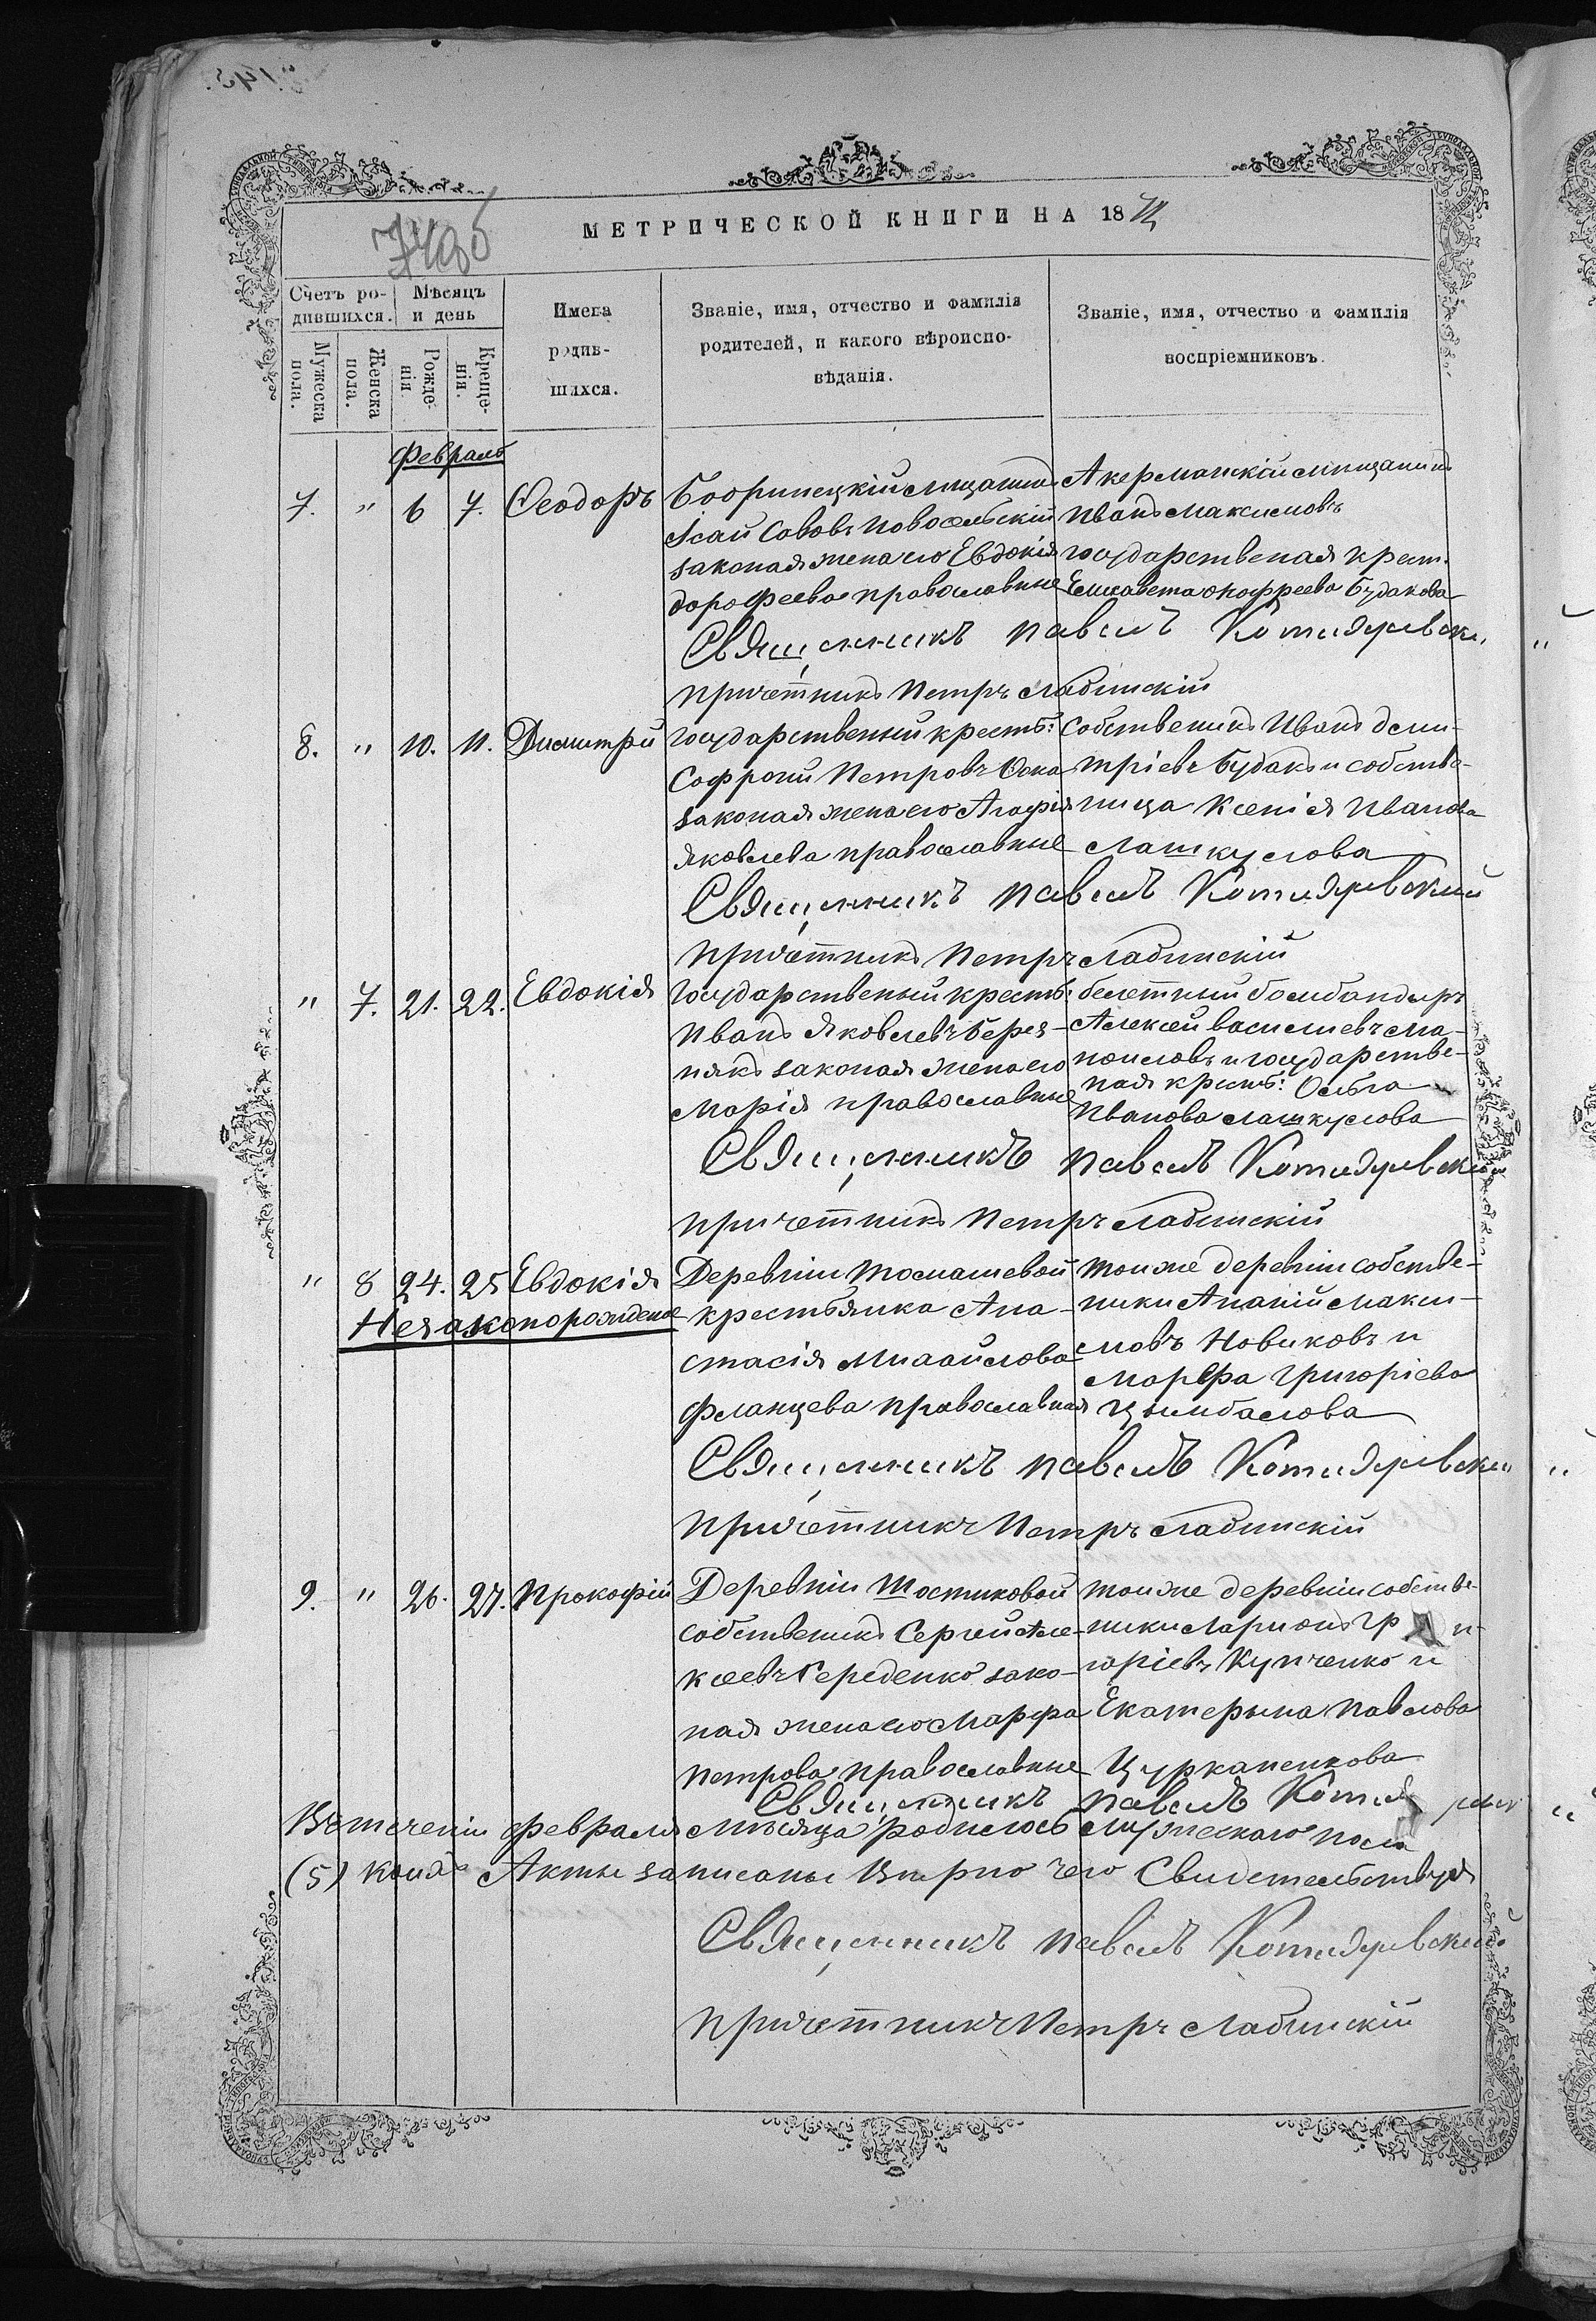 МЕТРИЧЕСКОЙ КНИГИ НА 18
Счетъ родившихся.
Мужеска пола.
Женска пола.
Мѣсяцъ и день
Рожденія.
Крещенія.
Имена родившихся.
Званіе, имя, отчество и фамилія
родителей, и какого вѣроиспо-
вѣданія.
Званіе, имя, отчество и фамилія
воспріемниковъ.
Февраль
7. " 6 7. Ѳеодоръ
Бобринецкій мѣщанинъ
Ісай Сововъ Новосельскій
законая жена его Евдокія
дорофеева православные
Акерманскій мѣщанинъ
Иванъ Максимовъ
государственая крест.
Елисавета онофреева Будакова
Священникъ Павелъ Котляревскій
причетникъ Петръ Лабинскій
8. " 10. 11. Димитрій
государственый крестъ:
Софроній Петровъ
законая жена его Агафія
яковлева православные
собственикъ Иванъ дми-
тріевъ Будакъ и собстве-
ница Ксенія Иванова
Лашкулова
Священникъ Павелъ Котляревскій
причетникъ Петръ Лабинскій
" 7. 21. 22. Евдокія
государственый крестъ:
Иванъ Яковлевъ Берез-
някъ законая жена его
Марія православные
билетный бомбандиръ
Алексей василиевъ Ма-
ноиловъ и государстве-
ная крестъ: Ольга
Иванова Лашкулова
Священникъ Павелъ Котляревскій
причетникъ Петръ Лабинскій
" 8 24. 25 Евдокія
Незаконорожденая
Деревніи Томашевой
крестьянка Ана-
стасія Михайлова
Фланцева православная
тоиже деревніи собстве-
ники Ананій Макси-
мовъ Новиковъ и
Марфа Григоріева
Цымбалова
Священникъ Павелъ Котляревскій
причетникъ Петръ Лабинскій
9. " 26. 27. Прокофій
Деревніи Шостиковой
собственикъ Сергей Але-
ксеевъ Середенко зако-
ная жена его Марфа
Петрова православные
тоиже деревніи собстве-
ники Ларионъ Гри-
горіевъ Купченко и
Екатерына Павлова
Цурканенкова
Священникъ Павелъ
Втеченіи февраля мѣсяца родилось мужескаго пола
(5) коихъ Акты записаны Вѣрно чего Свидетельствуя
Священникъ Павелъ Котляревскій
причетникъ Петръ Лабинскій